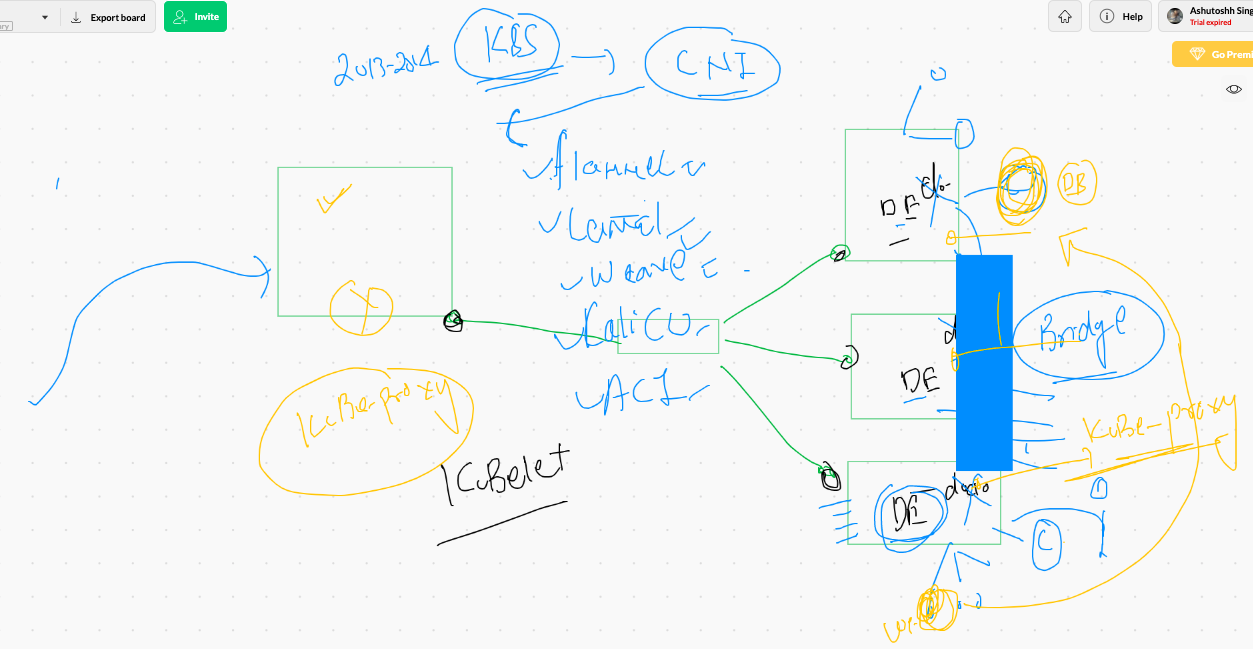 Export board
Invite
Help
Ashutoshh Sing
Trial expired
Go Premi
2013-2014 K8S CNI
flannel
Weave
Calico
ACI
Kube-proxy
Kubelet
DE
DE
DE
DB
Bridge
Kube-proxy
C